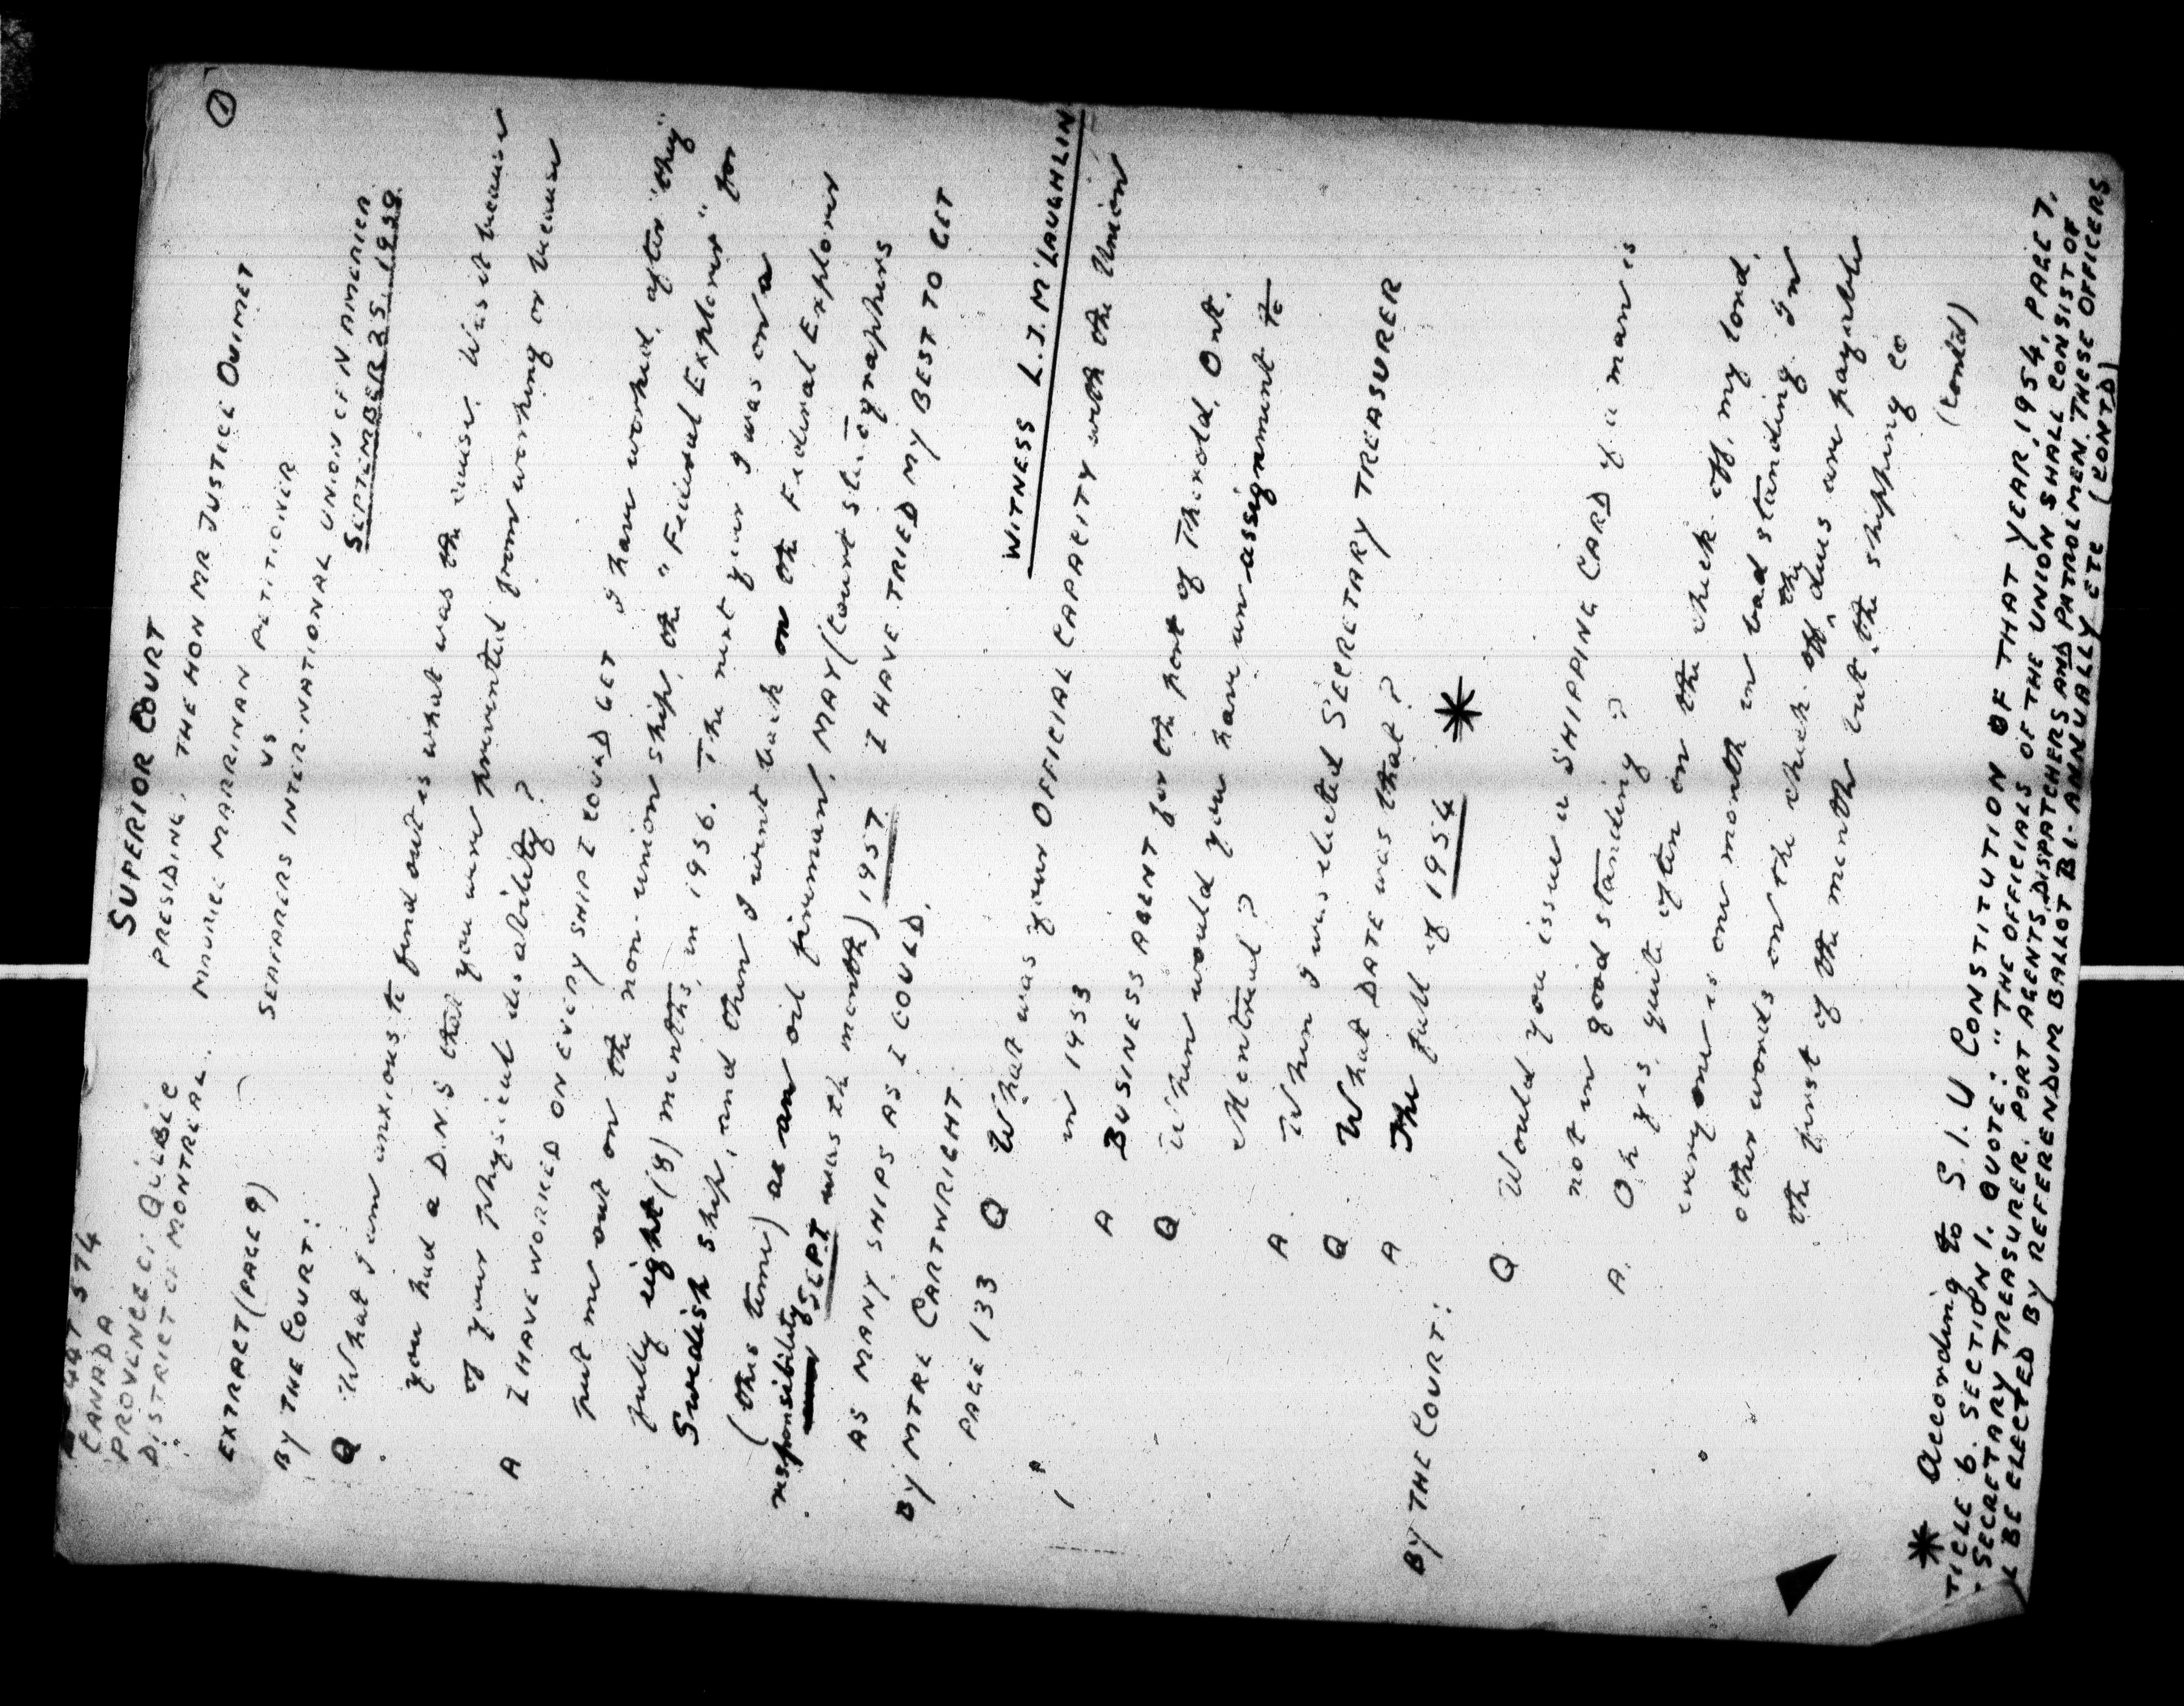 ①
447 574
CANADA
PROVENCE OF QUEBEC
DISTRICT OF MONTREAL.
SUPERIOR COURT
PRESIDING, THE HON MR JUSTICE OUIMET
MAURICE MARRINAN PETITIONER
VS
SEAFARERS INTER-NATIONAL UNION OF N AMERICA
SEPTEMBER 25 1958.
EXTRACT (PAGE 9)
BY THE COURT:
Q What I am anxious to find out is what was the cause. Was it because
you had a D.N.S that you were prevented from working or because
of your physical disability?
A I HAVE WORKED ON EVERY SHIP I COULD GET I have worked, after "they"
put me out on the non-union ship, the "Federal Explorer" for
fully eight (8) months, in 1956. The next year I was on a
Swedish ship, and then I went back on the Federal Explorer
(this time) as an oil fireman, MAY (Court stenographers
responsibility SEPT was the month) 1957 I HAVE TRIED MY BEST TO GET
AS MANY SHIPS AS I COULD.
BY MTRE CARTWRIGHT.
WITNESS L.J. M'LAUGHLIN
PAGE 133 Q What was your OFFICIAL CAPACITY with the Union
in 1953
A BUSINESS AGENT for the port of Thorold, Ont.
Q When would you have an assignment to
Montreal?
A When I was elected SECRETARY TREASURER
Q What DATE was that?
A The fall of 1954 *
BY THE COURT:
Q Would you issue a SHIPPING CARD if a man is
not in good standing?
A. Oh yes, quite often on the check-off, my lord,
every one is one month in bad standing. In
other words on the check-off the dues are payable
the first of the month but the shipping co
(contd)
* According to S.I.U CONSTITUTION OF THAT YEAR, 1954, PAGE 7,
TICLE 6. SECTION 1. QUOTE: "THE OFFICIALS OF THE UNION SHALL CONSIST OF
SECRETARY TREASURER, PORT AGENTS, DISPATCHERS AND PATROLMEN. THESE OFFICERS
L BE ELECTED BY REFERENDUM BALLOT BI-ANNUALLY ETC (CONTD)